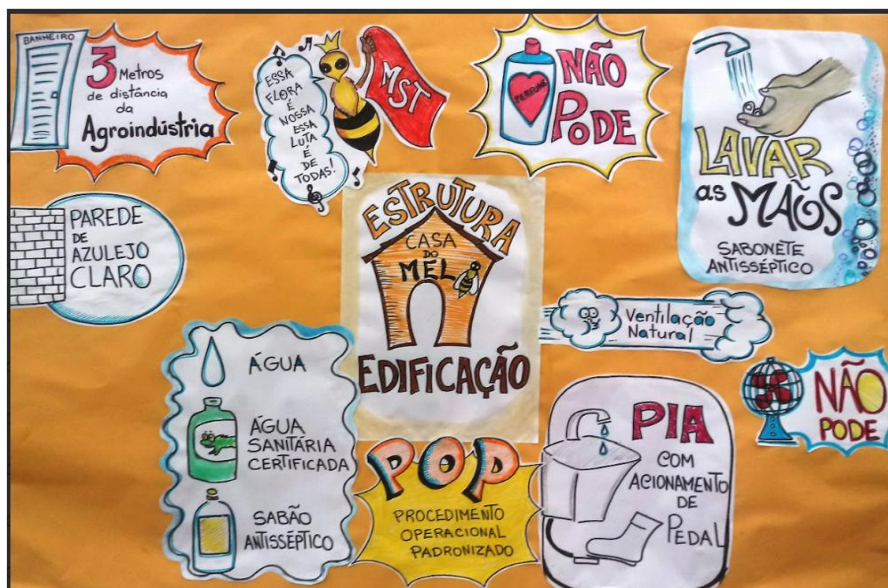 BANHEIRO
3 Metros
de distância
da
Agroindústria
ESSA
FLORA
É
NOSSA
ESSA
LUTA
É
DE
TODAS!
MST
PERFUME
NÃO
PODE
LAVAR
as MÃOS
SABONETE
ANTISSÉPTICO
PAREDE
DE
AZULEJO
CLARO
ESTRUTURA
CASA
DO
MEL
EDIFICAÇÃO
Ventilação
Natural
NÃO
PODE
ÁGUA
ÁGUA
SANITÁRIA
CERTIFICADA
SABÃO
ANTISSÉPTICO
POP
PROCEDIMENTO
OPERACIONAL
PADRONIZADO
PIA
COM
ACIONAMENTO
DE
PEDAL